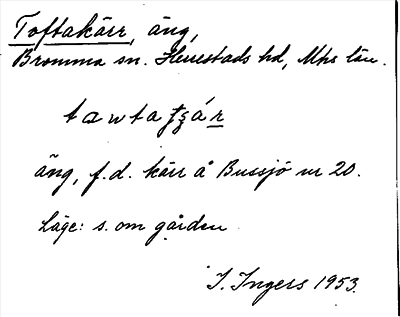 Toftakärr, äng,
Bromma sn. Herrestads hd, Mhs län.
tawta
äng, f.d. kärr å Bussjö nr 20.
Läge: s. om gården
I. Ingers 1953.